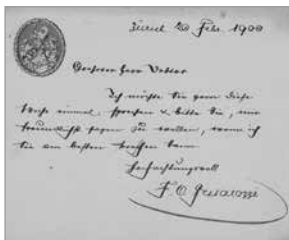 Zürich 20 Febr. 1900
Geehrter Herr Doktor
Ich möchte Sie gern diese
Woche einmal sprechen & bitte Sie, mir
freundlichst sagen zu wollen, wann ich
Sie am besten treffen kann
Hochachtungsvoll